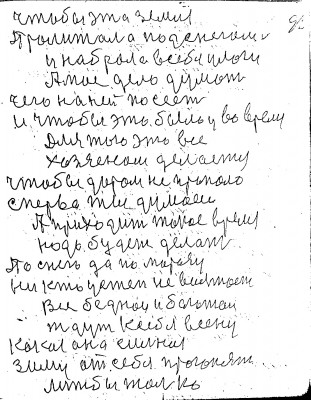 чтобы эта земля
Пролитала под снегом
и набрала в себя влаги
А мое дело думат
чего на ней посеет
и чтобы это было и во время
Для того это все
хозяеном делаетца
чтобы даром не пропало
сперва ти думаеш
А приходит такое время
надо будет делат
По снегу да по морозу
ни кто летем не
Все бедной и богатой
ждут к себе весну
Кака она
зиму от себя прогонят
лишбы толко